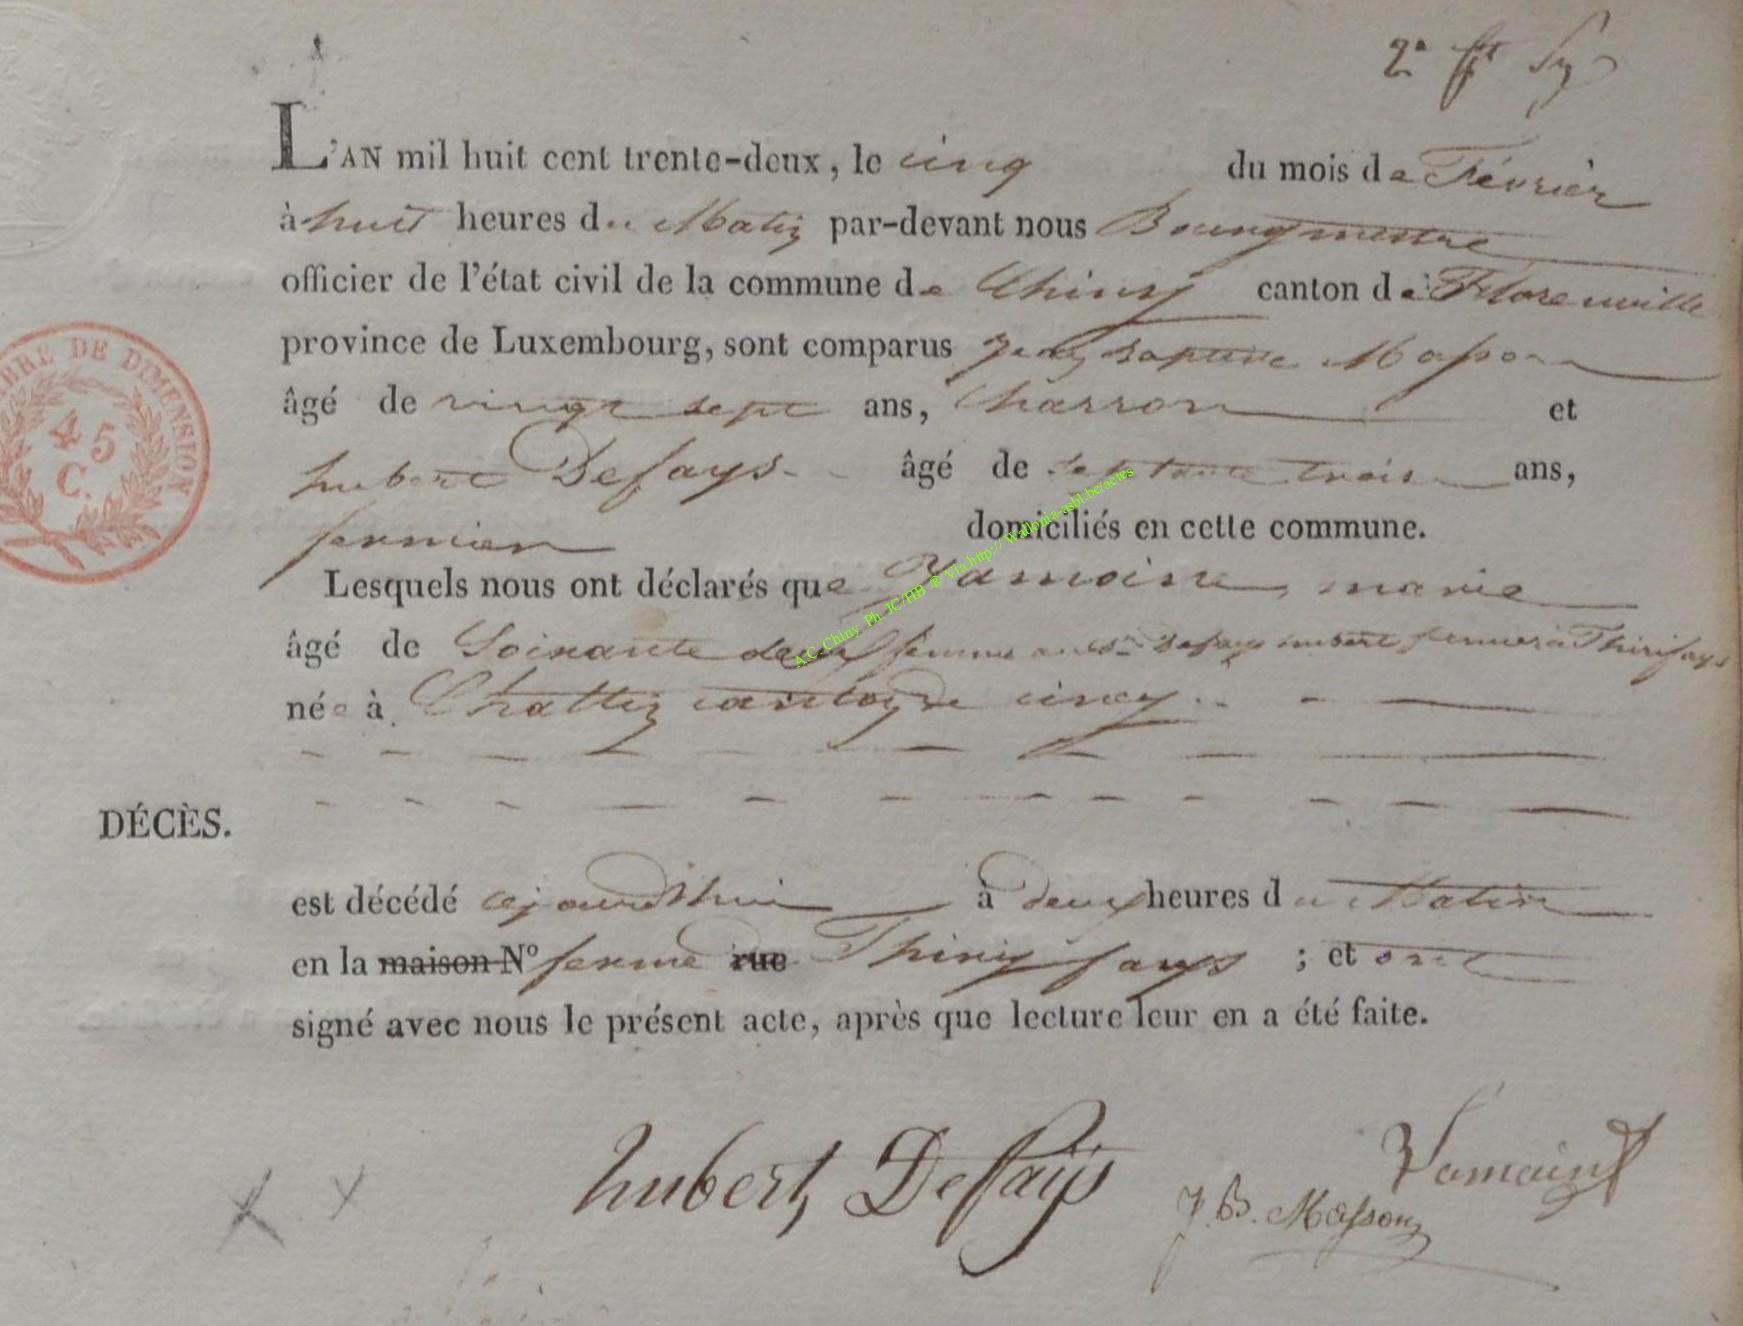 2e ft
L'AN mil huit cent trente-deux, le cinq du mois de Février
à huit heures du Matin par-devant nous Bourgmestre
officier de l'état civil de la commune de Chiny canton de Florenville
province de Luxembourg, sont comparus Jean baptiste Masson
âgé de vingt sept ans, Charron et
hubert Defays âgé de septante trois ans,
fermier domiciliés en cette commune.
Lesquels nous ont déclarés que Jamoine, marie
âgé de Soixante deux femme au Sr Defays hubert fermier à Thirifays
née à Chattin canton de ciney
DÉCÈS.
est décédé cejourdhui à deux heures du Matin
en la maison No ferme rue Thiry fays ; et ont
signé avec nous le présent acte, après que lecture leur en a été faite.
hubert Defays
J.B. Masson
TIMBRE DE DIMENSION
45
C.
A.C. Chiny Ph JC/HB @ Via http://Wallonia-asbl.be/actes